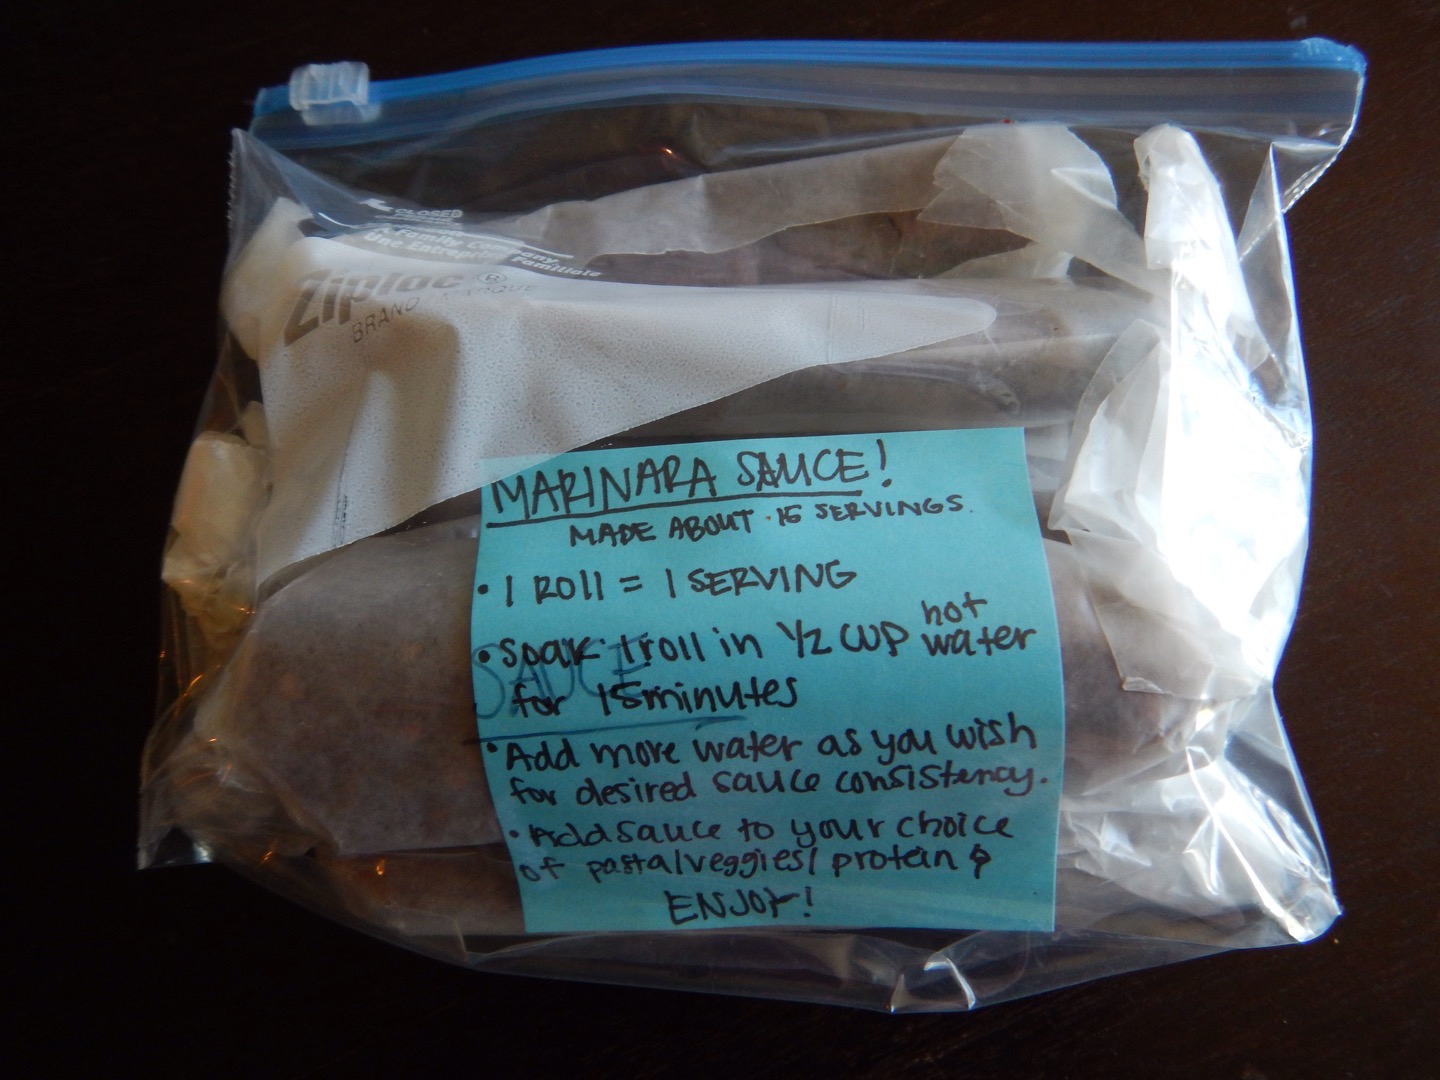 CLOSED
A Family Company
Une Entreprise Familiale
Ziploc®
BRAND MARQUE
MARINARA SAUCE!
MADE ABOUT 15 SERVINGS.
• 1 ROLL = 1 SERVING
• Soak 1 roll in 1/2 CUP hot water
for 15 minutes
SAUCE
• Add more water as you wish
for desired sauce consistency.
• Add sauce to your choice
of pasta/veggies/protein &
ENJOY!